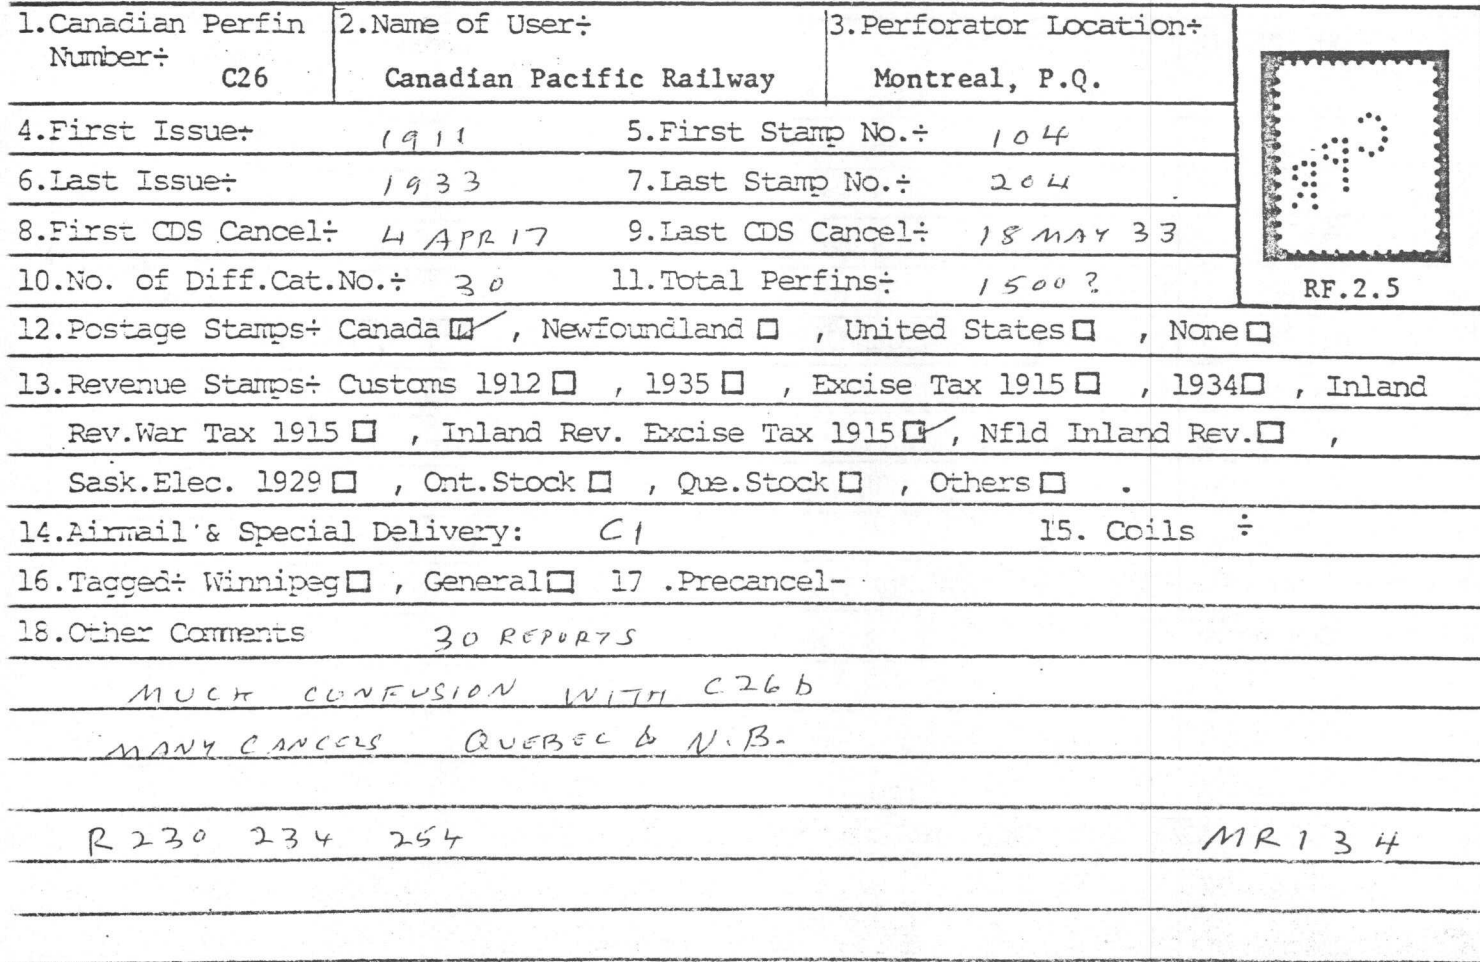 1.Canadian Perfin Number÷ C26
2.Name of User÷ Canadian Pacific Railway
3.Perforator Location÷ Montreal, P.Q.
4.First Issue÷ 1911 5.First Stamp No.÷ 104
6.Last Issue÷ 1933 7.Last Stamp No.÷ 204
8.First CDS Cancel÷ 4 APR 17 9.Last CDS Cancel÷ 18 MAY 33
10.No. of Diff.Cat.No.÷ 30 11.Total Perfins÷ 1500?
CPR
RF.2.5
12.Postage Stamps÷ Canada ☑ , Newfoundland ☐ , United States ☐ , None ☐
13.Revenue Stamps÷ Customs 1912 ☐ , 1935 ☐ , Excise Tax 1915 ☐ , 1934 ☐ , Inland
Rev.War Tax 1915 ☐ , Inland Rev. Excise Tax 1915 ☑ , Nfld Inland Rev. ☐ ,
Sask.Elec. 1929 ☐ , Ont.Stock ☐ , Que.Stock ☐ , Others ☐ .
14.Airmail & Special Delivery: C1 15. Coils ÷
16.Tagged÷ Winnipeg ☐ , General ☐ 17 .Precancel-
18.Other Comments 30 REPORTS
MUCH CONFUSION WITH C26b
MANY CANCELS QUEBEC & N.B.
R 230 234 254 MR 1 3 4